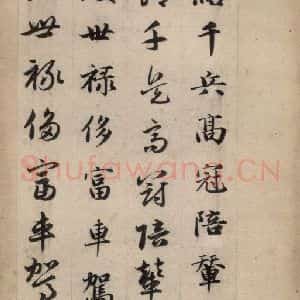 給千兵高冠陪輦
給千兵高冠陪輦
世祿侈富車駕
世祿侈富車駕
Shufawang.CN